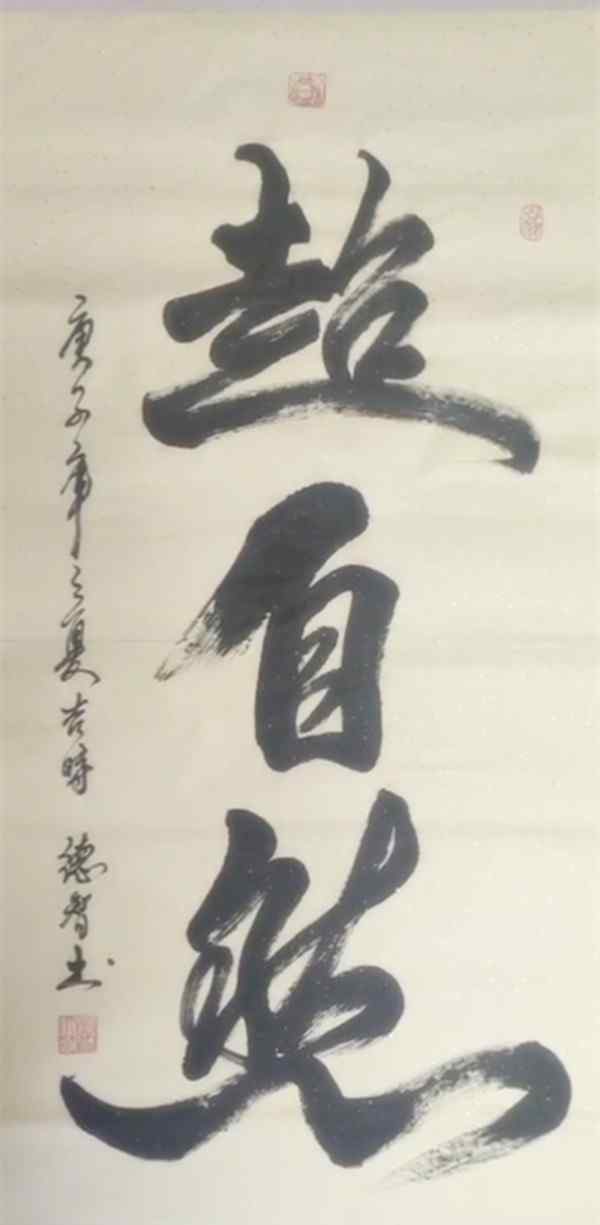 超自然
庚子年之夏吉时 德智书